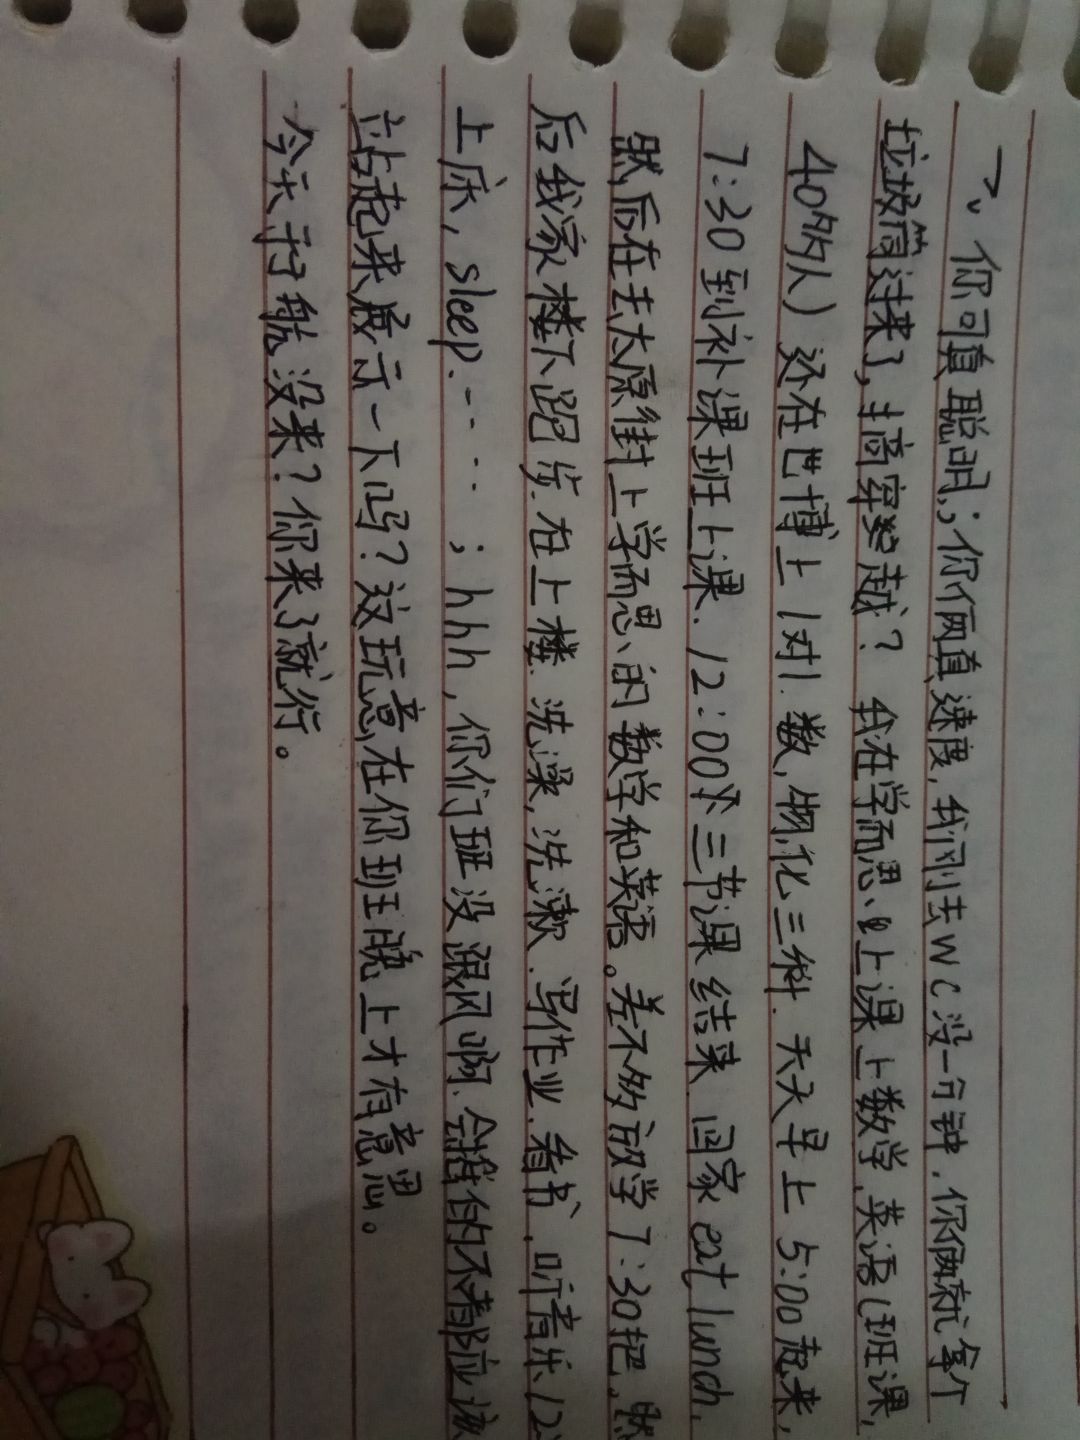 一、你可真聪明;你俩真速度,我刚去WC没一分钟.你俩就拿个
垃圾筒过来了,搞穿越?我在学而思上课上数学,英语(班课,
40多人)还在世博上1对1.数,物,化三科.天天早上5:00起来,
7:30到补课班上课.12:00下三节课结束.回家eat lunch.
然后在去太原街上学而思的数学和英语。差不多放学7:30把.然
后我家楼下跑步.在上楼.洗澡,洗漱.写作业.看书,听音乐12
上床,sleep.……;hhh,你们班没跟风啊.会的不都应该
站起来展示一下吗?这玩意在你班晚上才有意思。
今天于航没来?你来了就行。